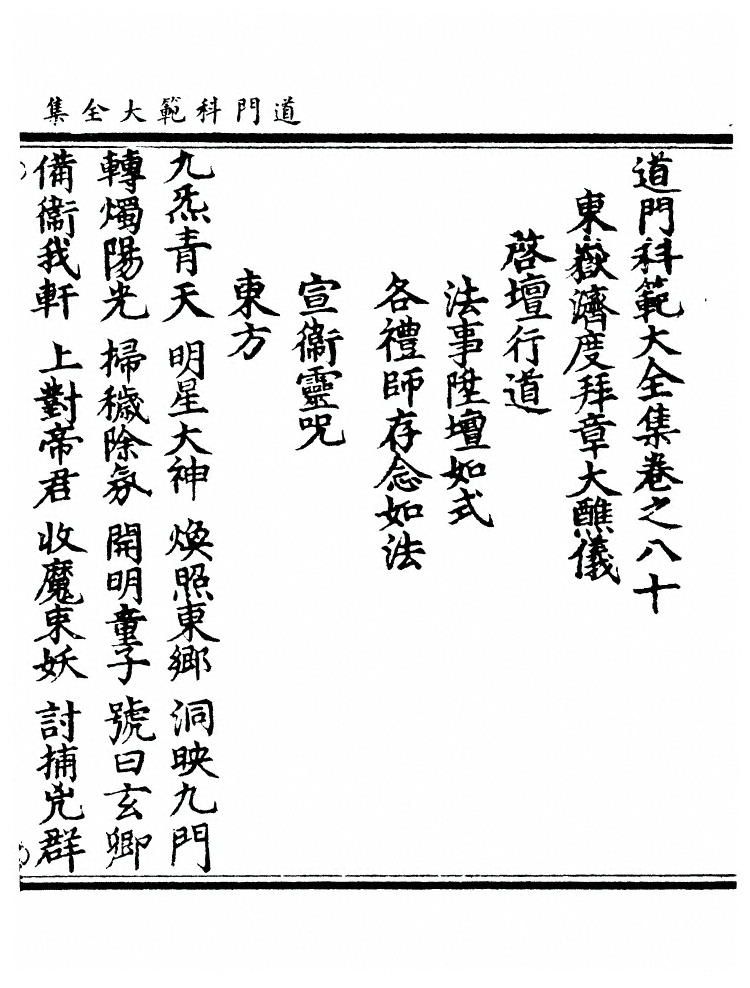 道門科範大全集
道門科範大全集卷之八十
東嶽濟度拜章大醮儀
啓壇行道
法事陞壇如式
各禮師存念如法
宣衞靈呪
東方
九炁青天 明星大神 煥照東鄉 洞映九門
轉燭陽光 掃穢除氛 開明童子 號曰玄卿
備衞我軒 上對帝君 收魔束妖 討捕兇群